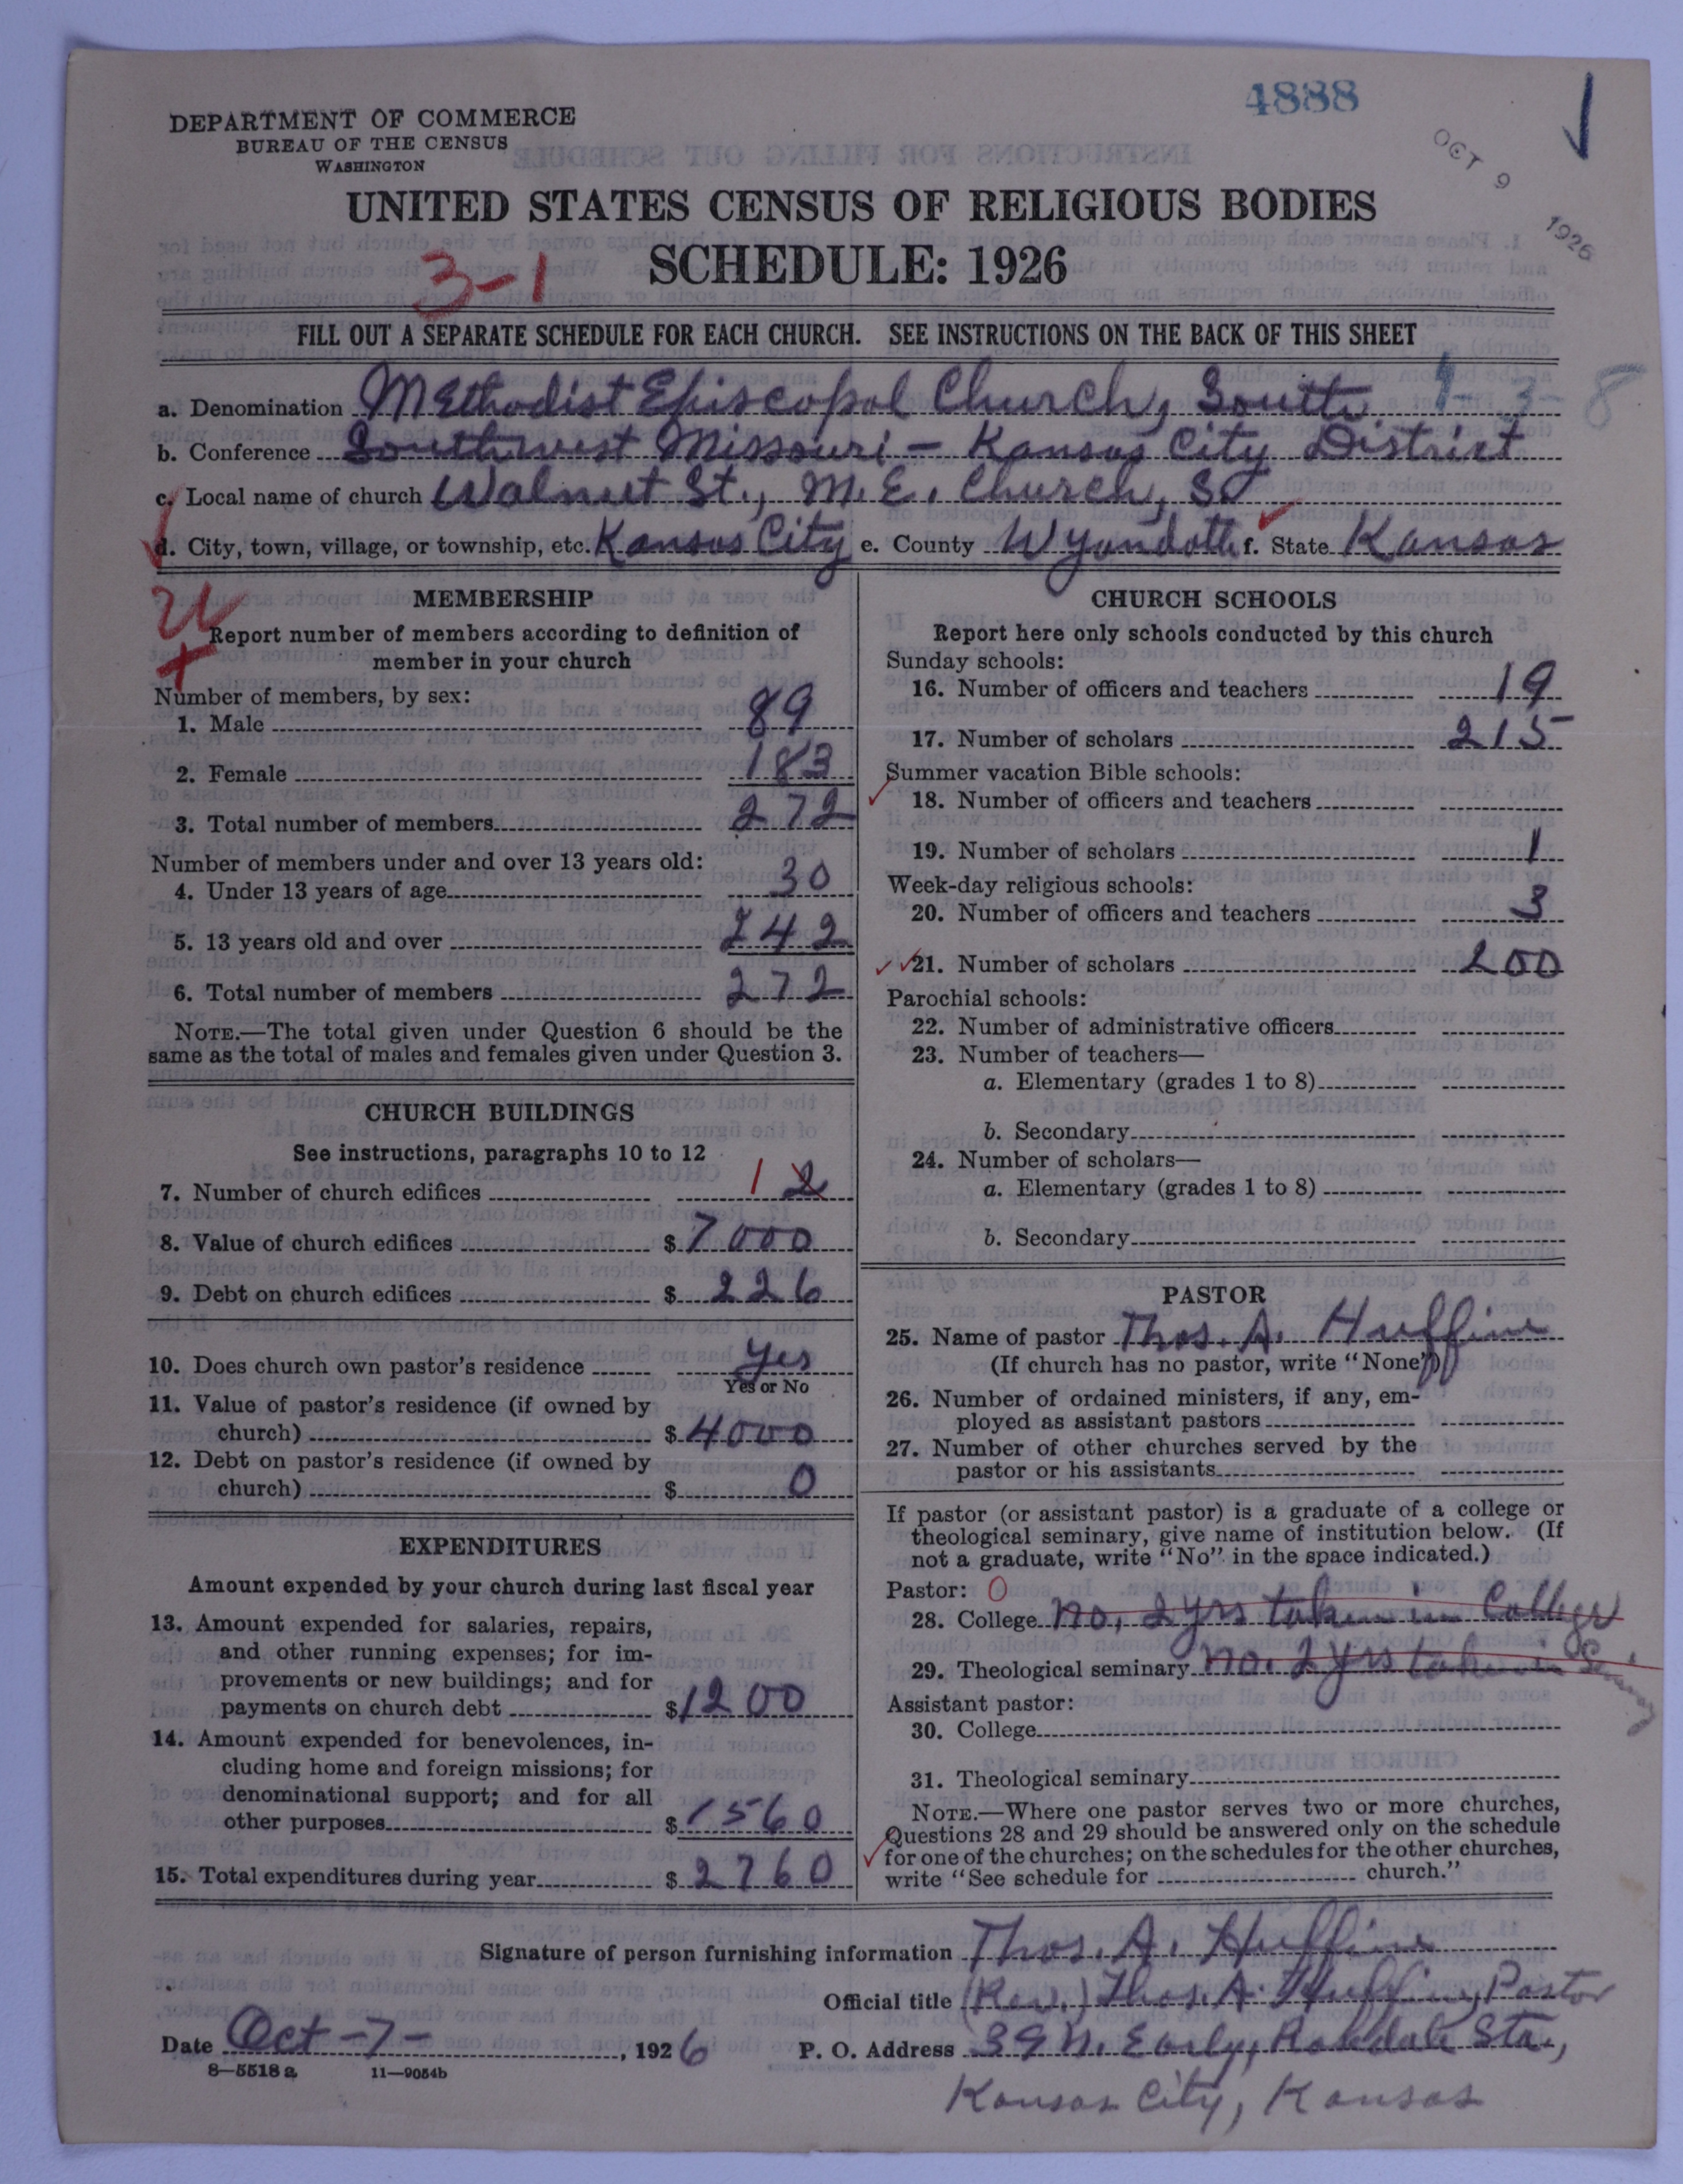 4888
OCT 9 1926
DEPARTMENT OF COMMERCE
BUREAU OF THE CENSUS
WASHINGTON
UNITED STATES CENSUS OF RELIGIOUS BODIES
SCHEDULE: 1926
3-1
FILL OUT A SEPARATE SCHEDULE FOR EACH CHURCH. SEE INSTRUCTIONS ON THE BACK OF THIS SHEET
a. Denomination Methodist Episcopal Church, South 1-3-8
b. Conference Southwest Missouri - Kansas City District
c. Local name of church Walnut St., M.E. Church, So
d. City, town, village, or township, etc. Kansas City e. County Wyandotte f. State Kansas
MEMBERSHIP
Report number of members according to definition of
member in your church
Number of members, by sex:
1. Male 89
2. Female 183
3. Total number of members 272
Number of members under and over 13 years old:
4. Under 13 years of age 30
5. 13 years old and over 242
6. Total number of members 272
NOTE.—The total given under Question 6 should be the
same as the total of males and females given under Question 3.
CHURCH BUILDINGS
See instructions, paragraphs 10 to 12
7. Number of church edifices 1 2
8. Value of church edifices $ 7000
9. Debt on church edifices $ 226
10. Does church own pastor's residence Yes
Yes or No
11. Value of pastor's residence (if owned by
church) $ 4000
12. Debt on pastor's residence (if owned by
church) $ 0
EXPENDITURES
Amount expended by your church during last fiscal year
13. Amount expended for salaries, repairs,
and other running expenses; for im-
provements or new buildings; and for
payments on church debt $ 1200
14. Amount expended for benevolences, in-
cluding home and foreign missions; for
denominational support; and for all
other purposes $ 1560
15. Total expenditures during year $ 2760
CHURCH SCHOOLS
Report here only schools conducted by this church
Sunday schools:
16. Number of officers and teachers 19
17. Number of scholars 215
Summer vacation Bible schools:
18. Number of officers and teachers
19. Number of scholars 1
Week-day religious schools:
20. Number of officers and teachers 3
21. Number of scholars 200
Parochial schools:
22. Number of administrative officers
23. Number of teachers—
a. Elementary (grades 1 to 8)
b. Secondary
24. Number of scholars—
a. Elementary (grades 1 to 8)
b. Secondary
PASTOR
25. Name of pastor Thos. A. Huffine
(If church has no pastor, write "None")
26. Number of ordained ministers, if any, em-
ployed as assistant pastors
27. Number of other churches served by the
pastor or his assistants
If pastor (or assistant pastor) is a graduate of a college or
theological seminary, give name of institution below. (If
not a graduate, write "No" in the space indicated.)
Pastor: 0
28. College no, 2 yrs taken in College
29. Theological seminary no. 2 yrs taken in Seminary
Assistant pastor:
30. College
31. Theological seminary
NOTE.—Where one pastor serves two or more churches,
Questions 28 and 29 should be answered only on the schedule
for one of the churches; on the schedules for the other churches,
write "See schedule for church."
Signature of person furnishing information Thos. A. Huffine
Official title (Rev.) Thos. A. Huffine, Pastor
Date Oct-7-, 1926 P. O. Address 39 N. Early, Rosedale Sta.,
8—5518a 11—9054b
Kansas City, Kansas